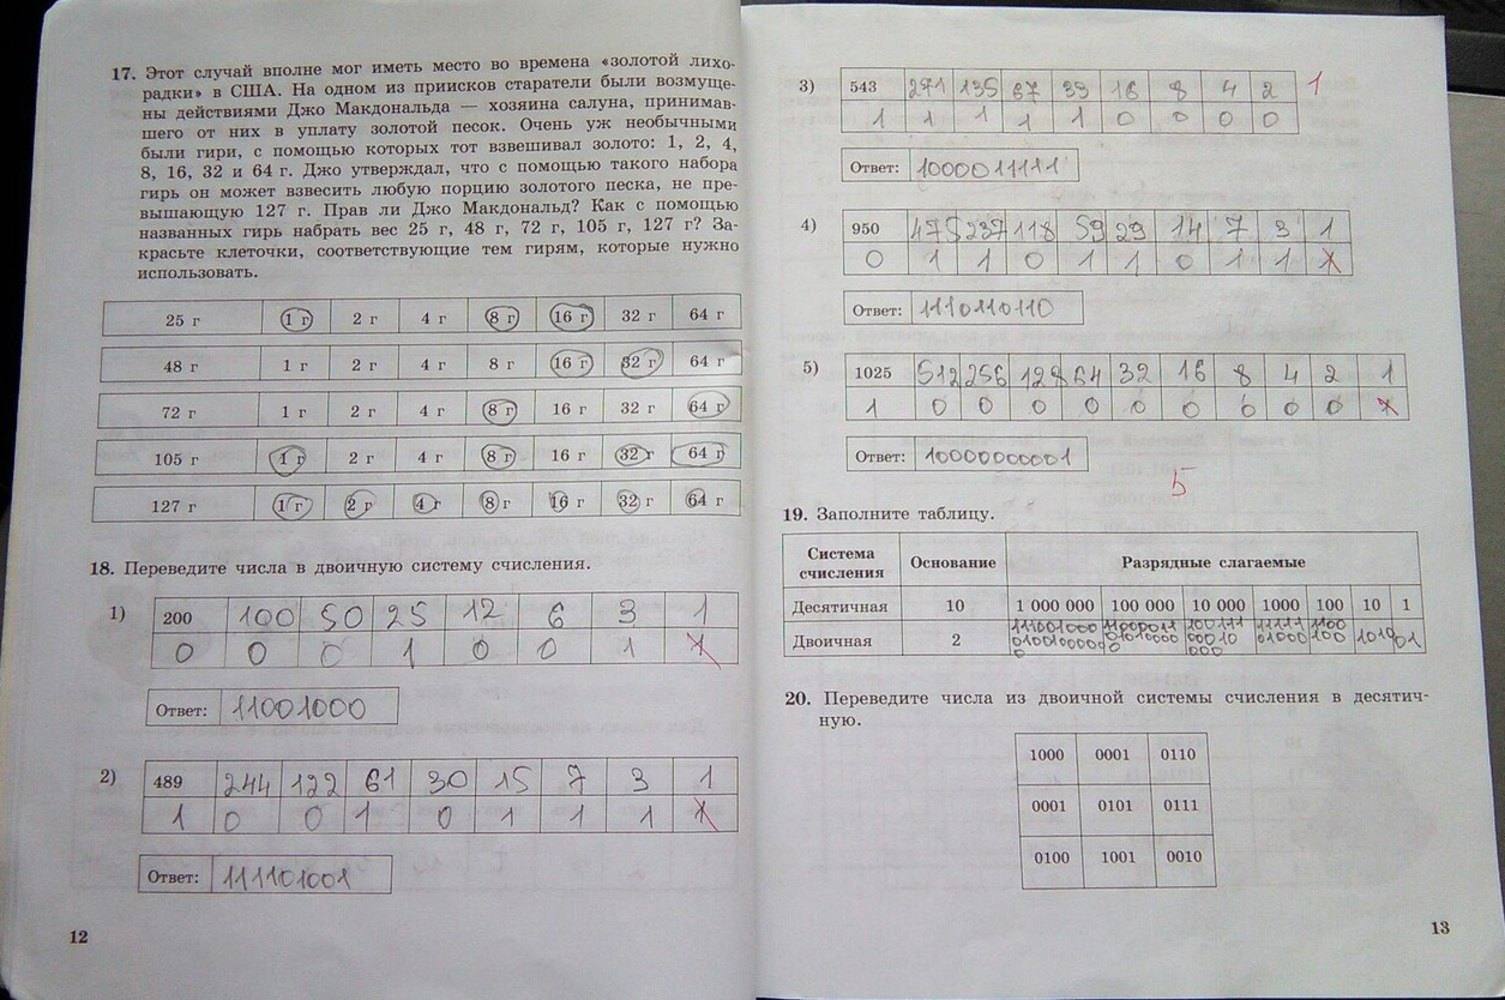 17. Этот случай вполне мог иметь место во времена «золотой лихо-
радки» в США. На одном из приисков старатели были возмуще-
ны действиями Джо Макдональда — хозяина салуна, принимав-
шего от них в уплату золотой песок. Очень уж необычными
были гири, с помощью которых тот взвешивал золото: 1, 2, 4,
8, 16, 32 и 64 г. Джо утверждал, что с помощью такого набора
гирь он может взвесить любую порцию золотого песка, не пре-
вышающую 127 г. Прав ли Джо Макдональд? Как с помощью
названных гирь набрать вес 25 г, 48 г, 72 г, 105 г, 127 г? За-
красьте клеточки, соответствующие тем гирям, которые нужно
использовать.
25 г 1 г 2 г 4 г 8 г 16 г 32 г 64 г
48 г 1 г 2 г 4 г 8 г 16 г 32 г 64 г
72 г 1 г 2 г 4 г 8 г 16 г 32 г 64 г
105 г 1 г 2 г 4 г 8 г 16 г 32 г 64 г
127 г 1 г 2 г 4 г 8 г 16 г 32 г 64 г
18. Переведите числа в двоичную систему счисления.
1) 200 100 50 25 12 6 3 1
0 0 0 1 0 0 1 1
Ответ: 11001000
2) 489 244 122 61 30 15 7 3 1
1 0 0 1 0 1 1 1 1
Ответ: 111101001
12
3) 543 271 135 67 33 16 8 4 2 1
1 1 1 1 1 0 0 0 0
Ответ: 1000011111
4) 950 475 237 118 59 29 14 7 3 1
0 1 1 0 1 1 0 1 1 1
Ответ: 1110110110
5) 1025 512 256 128 64 32 16 8 4 2 1
1 0 0 0 0 0 0 0 0 0 1
Ответ: 10000000001
5
19. Заполните таблицу.
Система счисления Основание Разрядные слагаемые
Десятичная 10 1 000 000 100 000 10 000 1000 100 10 1
Двоичная 2 11111 01000 1100 100 1010 01
20. Переведите числа из двоичной системы счисления в десятич-
ную.
1000 0001 0110
0001 0101 0111
0100 1001 0010
13